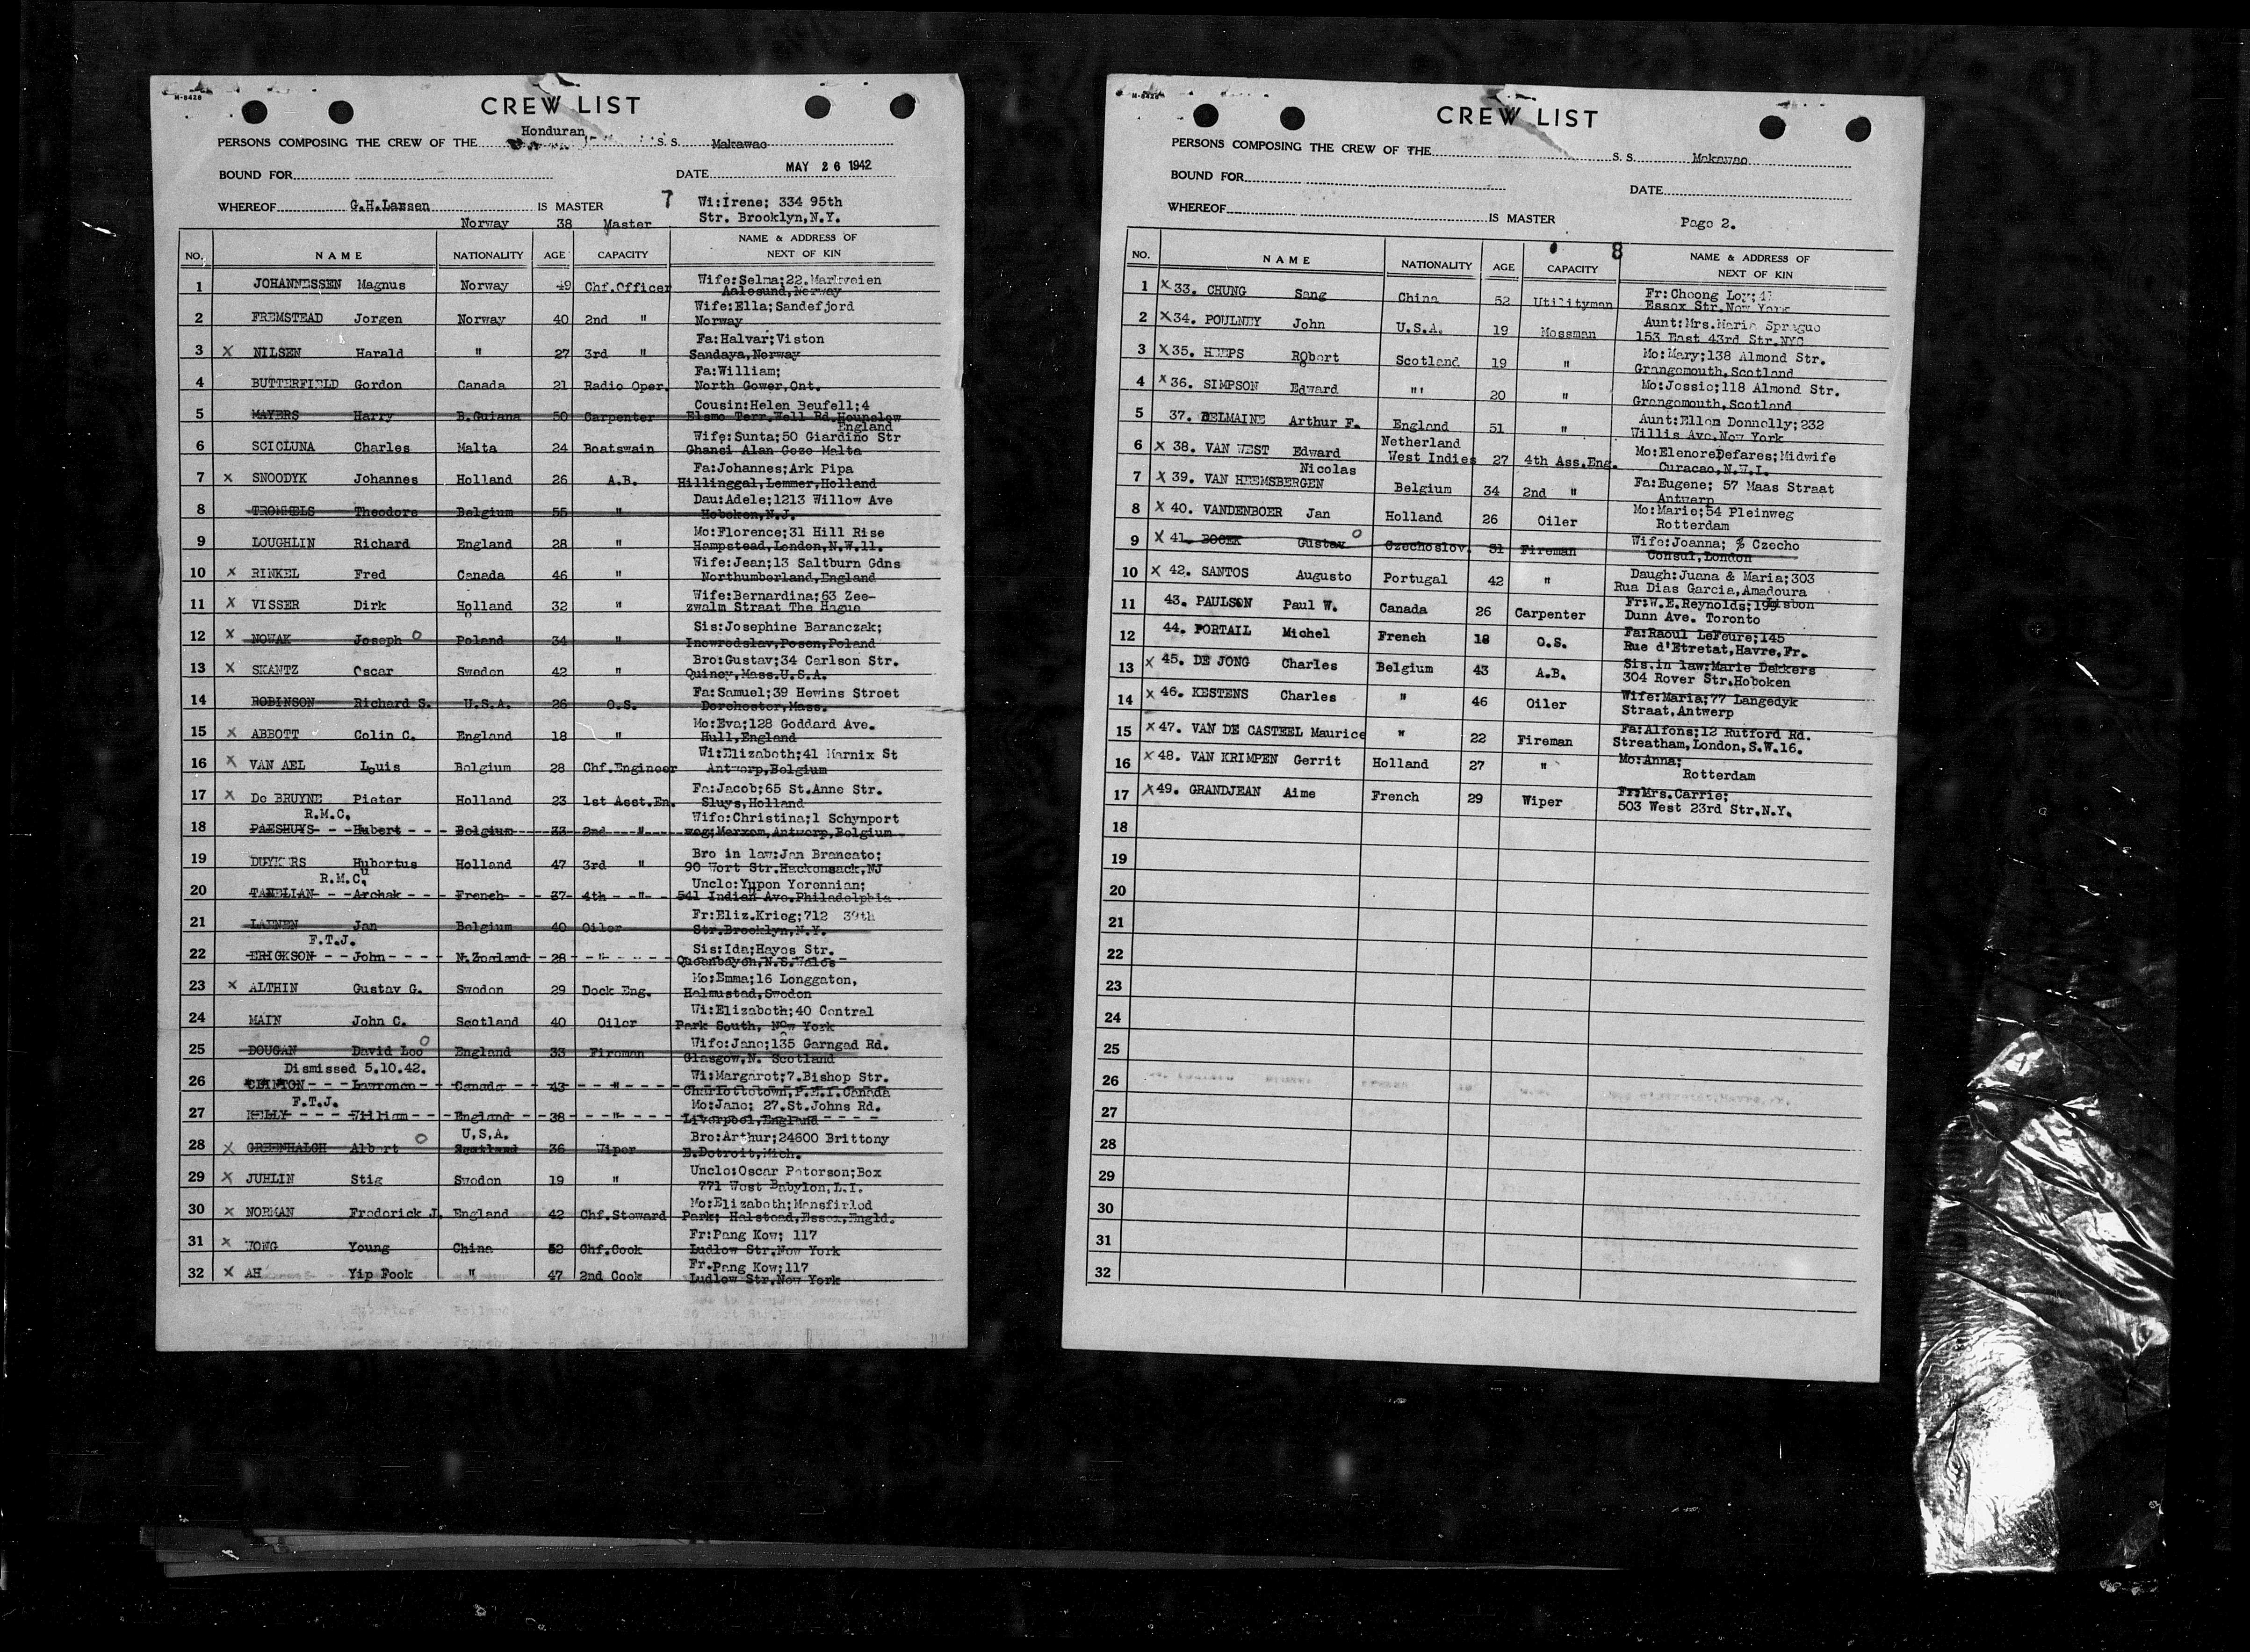 M-8428
CREW LIST
Honduran
PERSONS COMPOSING THE CREW OF THE S. S. Makawao
BOUND FOR DATE MAY 26 1942
WHEREOF G.H.Larsen IS MASTER 7 Wi:Irene; 334 95th
Norway 38 Master Str. Brooklyn,N.Y.
NO. NAME NATIONALITY AGE CAPACITY NAME & ADDRESS OF NEXT OF KIN
1 JOHANNESSEN Magnus Norway 49 Chf.Officer Wife:Selma;22.Markveien
Aalesund,Norway
2 FREMSTEAD Jorgen Norway 40 2nd " Wife:Ella;Sandefjord
Norway
3 X NILSEN Harald " 27 3rd " Fa:Halvar;Viston
Sandaya,Norway
4 BUTTERFIELD Gordon Canada 21 Radio Oper. Fa:William;
North Gower,Ont.
5 MAYERS Harry B.Guiana 50 Carpenter Cousin:Helen Beufell;4
Elsmo Terr.Well Rd.Hounslow
England
6 SCICLUNA Charles Malta 24 Boatswain Wife:Sunta;50 Giardino Str
Ghansi Alan Goze Malta
7 X SNOODYK Johannes Holland 26 A.B. Fa:Johannes;Ark Pipa
Hillinggal,Lemmer,Holland
8 TROMMELS Theodore Belgium 55 " Dau:Adele;1213 Willow Ave
Hoboken,N.J.
9 LOUGHLIN Richard England 28 " Mo:Florence;31 Hill Rise
Hampstead,London,N.W.11.
10 X RINKEL Fred Canada 46 " Wife:Jean;13 Saltburn Gdns
Northumberland,England
11 X VISSER Dirk Holland 32 " Wife:Bernardina;63 Zee-
zwalm Straat The Hague
12 X NOWAK Joseph O Poland 34 " Sis:Josephine Baranczak;
Inowrodslav,Posen,Poland
13 X SKANTZ Oscar Sweden 42 " Bro:Gustav;34 Carlson Str.
Quincy,Mass.U.S.A.
14 ROBINSON Richard S. U.S.A. 26 O.S. Fa:Samuel;39 Hewins Street
Dorchester,Mass.
15 X ABBOTT Colin C. England 18 " Mo:Eva;128 Goddard Ave.
Hull,England
16 X VAN AEL Louis Belgium 28 Chf.Engineer Wi:Elizabeth;41 Marnix St
Antwerp,Belgium
17 X De BRUYNE Pieter Holland 23 1st Asst.En. Fa:Jacob;65 St.Anne Str.
Sluys,Holland
R.M.C.
18 PAESHUYS Hubert Belgium 33 2nd " Wife:Christina;1 Schynport
weg;Merxem,Antwerp,Belgium
19 DUYKERS Hubertus Holland 47 3rd " Bro in law:Jan Brancato;
90 Wort Str.Hackensack,NJ
R.M.C.
20 TAHELIAN Archak French 37 4th " Uncle:Yupon Yorennian;
541 Indian Ave.Philadelphia
21 LAENEN Jan Belgium 40 Oiler Fr:Eliz.Krieg;712 39th
Str.Brooklyn,N.Y.
F.T.J.
22 ERICKSON John N.Zealand 28 " Sis:Ida;Hayes Str.
Queenbayen,N.S.Wales
23 X ALTHIN Gustav G. Sweden 29 Dock Eng. Mo:Emma;16 Longgaton,
Halmustad,Sweden
24 MAIN John C. Scotland 40 Oiler Wi:Elizabeth;40 Central
Park South, New York
25 DOUGAN David Leo O England 33 Fireman Wife:Jane;135 Garngad Rd.
Glasgow,N. Scotland
Dismissed 5.10.42.
26 CLINTON Lawrence Canada 43 " Wi:Margaret;7.Bishop Str.
Charlottetown,P.E.I.Canada
F.T.J.
27 KELLY William England 38 " Mo:Jane; 27.St.Johns Rd.
Liverpool,England
U.S.A.
28 X GREENHALGH Albert O Scotland 36 Wiper Bro:Arthur;24600 Brittony
E.Detroit,Mich.
29 X JUHLIN Stig Sweden 19 " Uncle:Oscar Peterson;Box
771 West Babylon,L.I.
30 X NORMAN Frederick J. England 42 Chf.Steward Mo:Elizabeth;Mensfirled
Park; Halstead,Essex,Engld.
31 X WONG Young China 52 Chf.Cook Fr:Pang Kow; 117
Ludlow Str.New York
32 X AH Yip Fook " 47 2nd Cook Fr.Pang Kow;117
Ludlow Str.New York
M-8428
CREW LIST
PERSONS COMPOSING THE CREW OF THE S. S. Makawao
BOUND FOR DATE
WHEREOF IS MASTER Page 2.
8
NO. NAME NATIONALITY AGE CAPACITY NAME & ADDRESS OF NEXT OF KIN
1 X 33. CHUNG Sang China 52 Utilityman Fr:Choong Loy;
Essex Str.New York
2 X 34. POULNEY John U.S.A. 19 Messman Aunt:Mrs.Marie Sprague
153 East 43rd Str.NYC
3 X 35. HEEPS Robert Scotland 19 " Mo:Mary;138 Almond Str.
Grangemouth,Scotland
4 X 36. SIMPSON Edward " 20 " Mo:Jessie;118 Almond Str.
Grangemouth,Scotland
5 37. BELMAINE Arthur F. England 51 " Aunt:Ellen Donnelly;232
Willis Ave.New York
6 X 38. VAN WEST Edward Netherland West Indies 27 4th Ass.Eng. Mo:Elenore Defares;Midwife
Curacao,N.W.I.
7 X 39. VAN HEEMSBERGEN Nicolas Belgium 34 2nd " Fa:Eugene; 57 Maas Straat
Antwerp
8 X 40. VANDENBOER Jan Holland 26 Oiler Mo:Marie;54 Pleinweg
Rotterdam
9 X 41. BOCEK Gustav O Czechoslov. 31 Fireman Wife:Joanna; % Czecho
Consul,London
10 X 42. SANTOS Augusto Portugal 42 " Daugh:Juana & Maria;303
Rua Dias Garcia,Amadoura
Lisbon
11 43. PAULSON Paul W. Canada 26 Carpenter Fr:W.E.Reynolds;199
Dunn Ave. Toronto
12 44. PORTAIL Michel French 18 O.S. Fa:Raoul LeFeure;145
Rue d'Etretat,Havre,Fr.
13 X 45. DE JONG Charles Belgium 43 A.B. Sis.in law:Marie Dekkers
304 Rover Str.Hoboken
14 X 46. KESTENS Charles " 46 Oiler Wife:Maria;77 Langedyk
Straat,Antwerp
15 X 47. VAN DE CASTEEL Maurice " 22 Fireman Fa:Alfons;12 Rutford Rd.
Streatham,London,S.W.16.
16 X 48. VAN KRIMPEN Gerrit Holland 27 " Mo:Anna;
Rotterdam
17 X 49. GRANDJEAN Aime French 29 Wiper Fr:Mrs.Carrie;
503 West 23rd Str.N.Y.
18
19
20
21
22
23
24
25
26
27
28
29
30
31
32